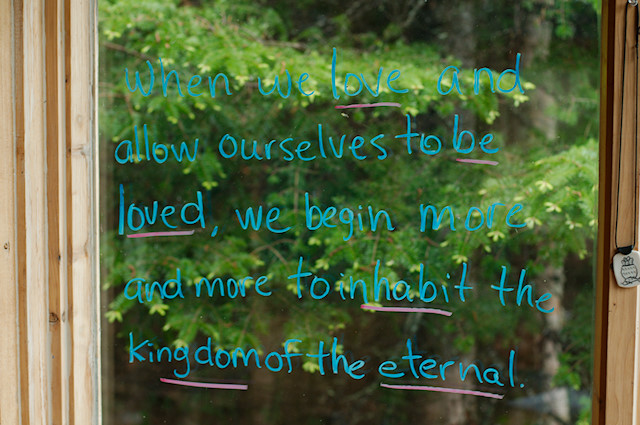 When we love and
allow ourselves to be
loved, we begin more
and more to inhabit the
kingdom of the eternal.